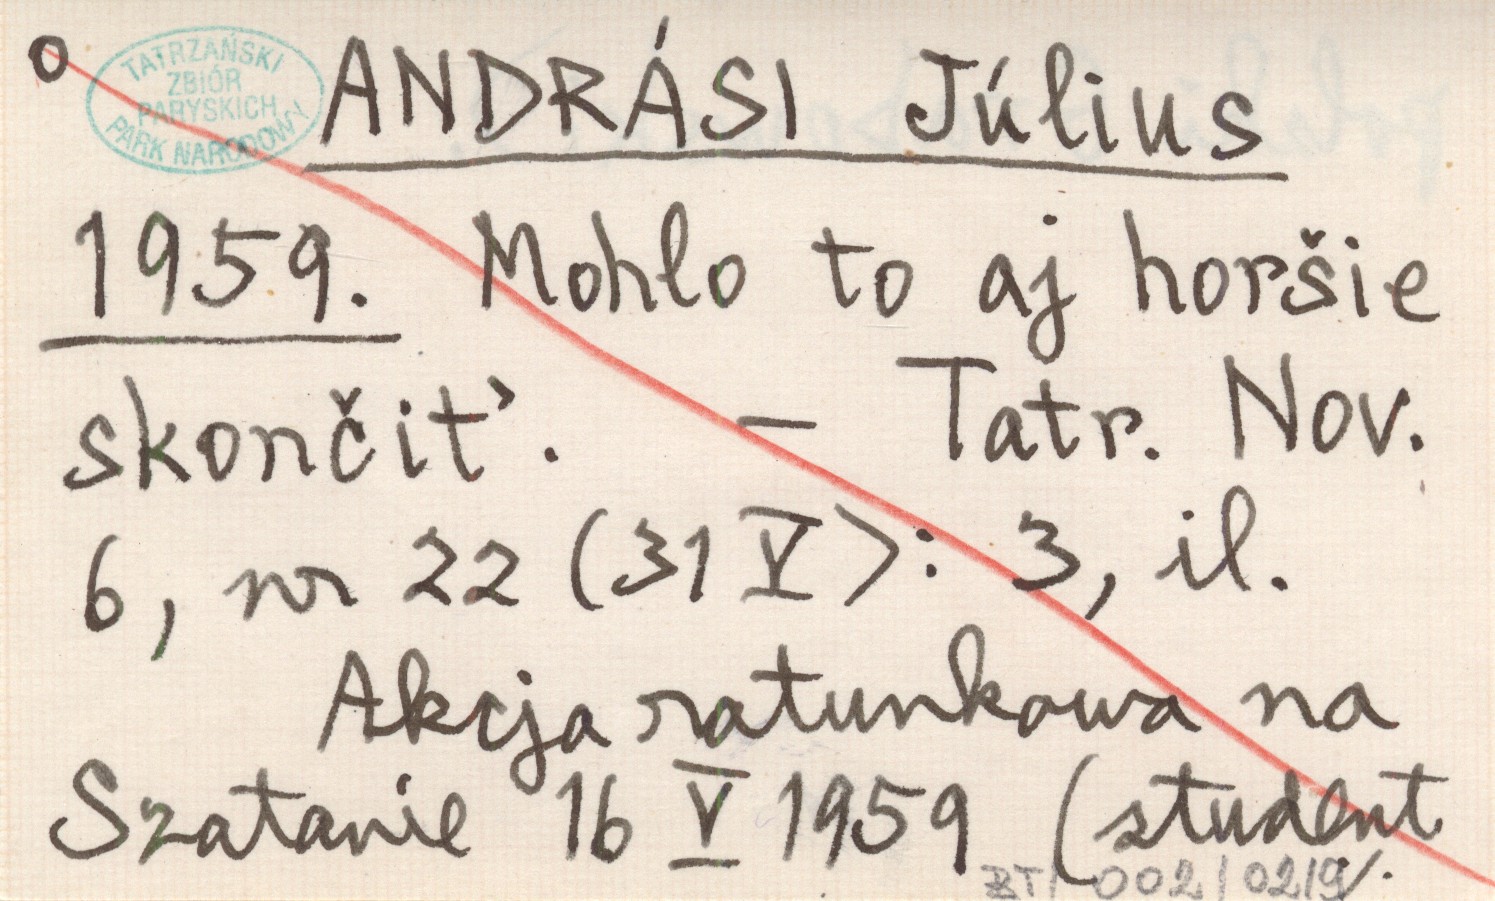 o
TATRZAŃSKI
ZBIÓR
PARYSKICH
PARK NARODOWY
ANDRÁSI Július
1959. Mohlo to aj horšie
skončiť. — Tatr. Nov.
6, nr 22 (31 V): 3, il.
Akcja ratunkowa na
Szatanie 16 V 1959 (student
002/0219/.